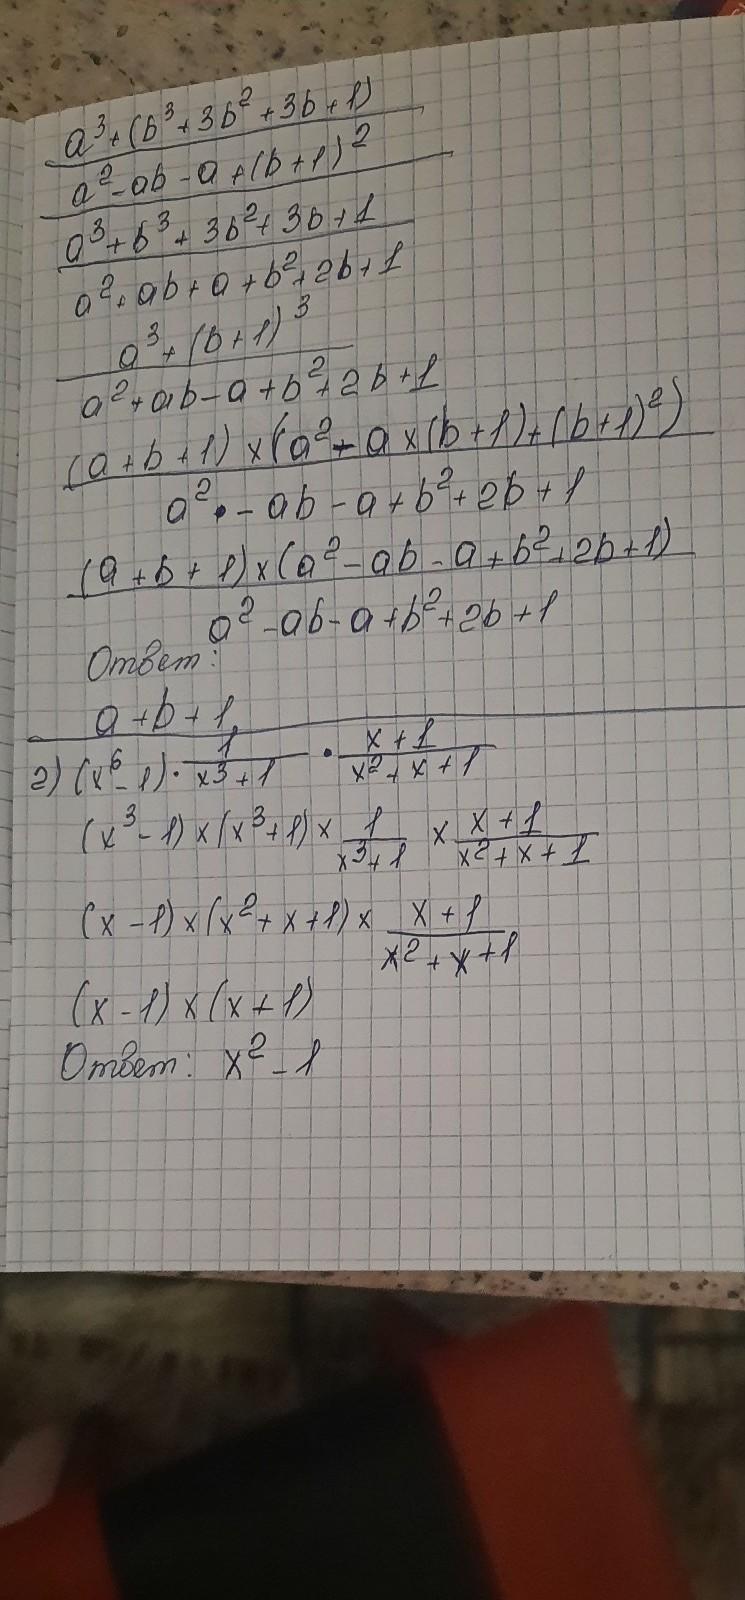 a³+(b³+3b²+3b+1)
a²-ab-a+(b+1)²
a³+b³+3b²+3b+1
a²+ab+a+b²+2b+1
a³+(b+1)³
a²+ab-a+b²+2b+1
(a+b+1)×(a²-a×(b+1)+(b+1)²)
a²-ab-a+b²+2b+1
(a+b+1)×(a²-ab-a+b²+2b+1)
a²-ab-a+b²+2b+1
Ответ:
a+b+1
2) (x⁶-1)·1/(x³+1)·(x+1)/(x²+x+1)
(x³-1)×(x³+1)×1/(x³+1)×(x+1)/(x²+x+1)
(x-1)×(x²+x+1)×(x+1)/(x²+x+1)
(x-1)×(x+1)
Ответ: x²-1